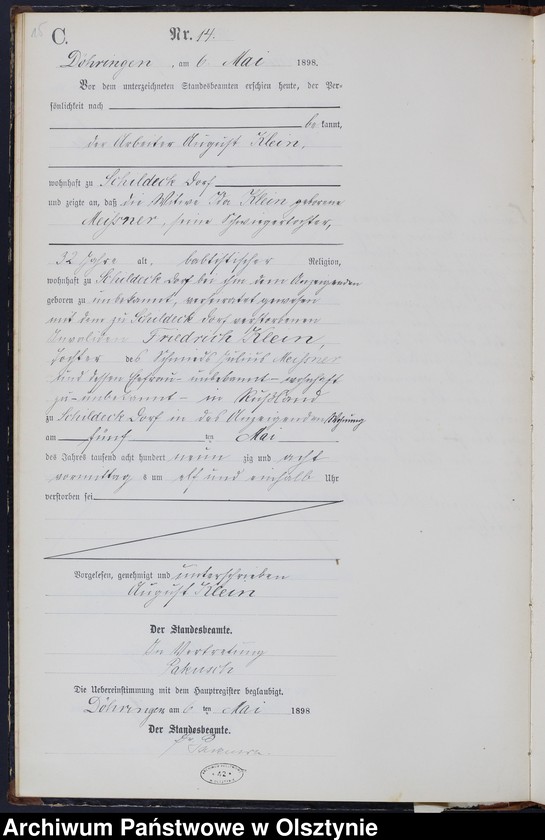 C.
Nr. 14.
Döhringen, am 6 Mai 1898.
Vor dem unterzeichneten Standesbeamten erschien heute, der Per-
sönlichkeit nach
be kannt,
der Arbeiter August Klein,
wohnhaft zu Schildeck Dorf
und zeigte an, daß die Witwe Ida Klein geborene
Meißner, seine Schwiegertochter,
32 Jahre alt, babtistischer Religion,
wohnhaft zu Schildeck Dorf bei ihm dem Anzeigenden
geboren zu unbekannt, verheiratet gewesen
mit dem zu Schildeck Dorf verstorbenen
Invaliden Friedrich Klein,
Tochter des Schmieds Julius Meißner
und dessen Ehefrau - unbekannt - wohnhaft
zu - unbekannt - in Rußland
zu Schildeck Dorf in des Anzeigenden Wohnung
am fünf ten Mai
des Jahres tausend acht hundert neun zig und acht
vormittag s um elf und einhalb Uhr
verstorben sei
Vorgelesen, genehmigt und unterschrieben
August Klein
Der Standesbeamte.
In Vertretung
Die Uebereinstimmung mit dem Hauptregister beglaubigt.
Döhringen am 6 ten Mai 1898
Der Standesbeamte.
42
Archiwum Państwowe w Olsztynie